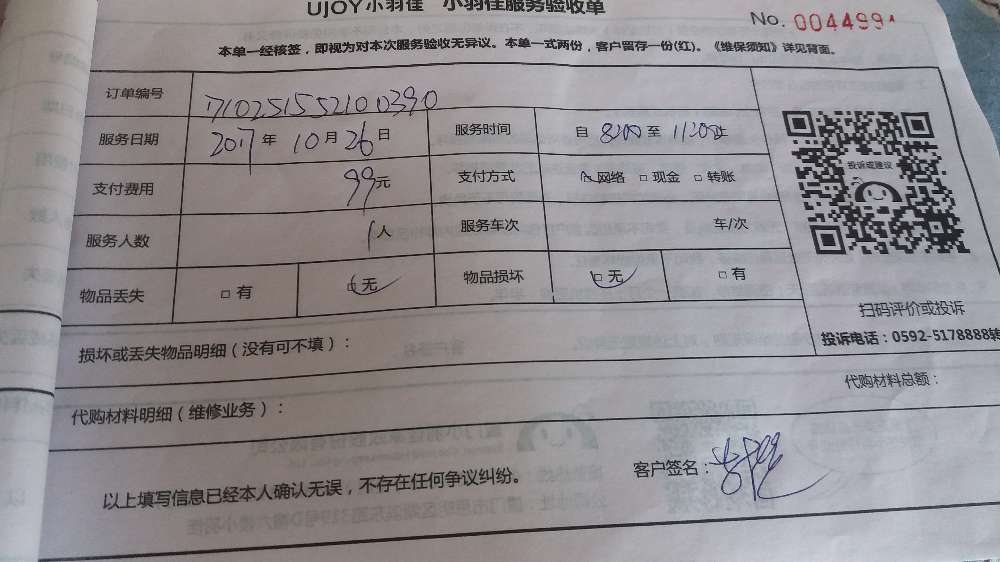 UJOY小羽佳 小羽佳服务验收单
No. 004499
本单一经核签，即视为对本次服务验收无异议。本单一式两份，客户留存一份(红)。《维保须知》详见背面。
订单编号 1710251552100390
服务日期 2017年10月26日 服务时间 自8:00至11:00止
支付费用 99元 支付方式 网络 □现金 □转账
服务人数 1人 服务车次 车/次
物品丢失 □有 □无 物品损坏 □无 □有
投诉或建议
扫码评价或投诉
投诉电话：0592-5178888转
损坏或丢失物品明细（没有可不填）：
代购材料明细（维修业务）： 代购材料总额：
以上填写信息已经本人确认无误，不存在任何争议纠纷。 客户签名：